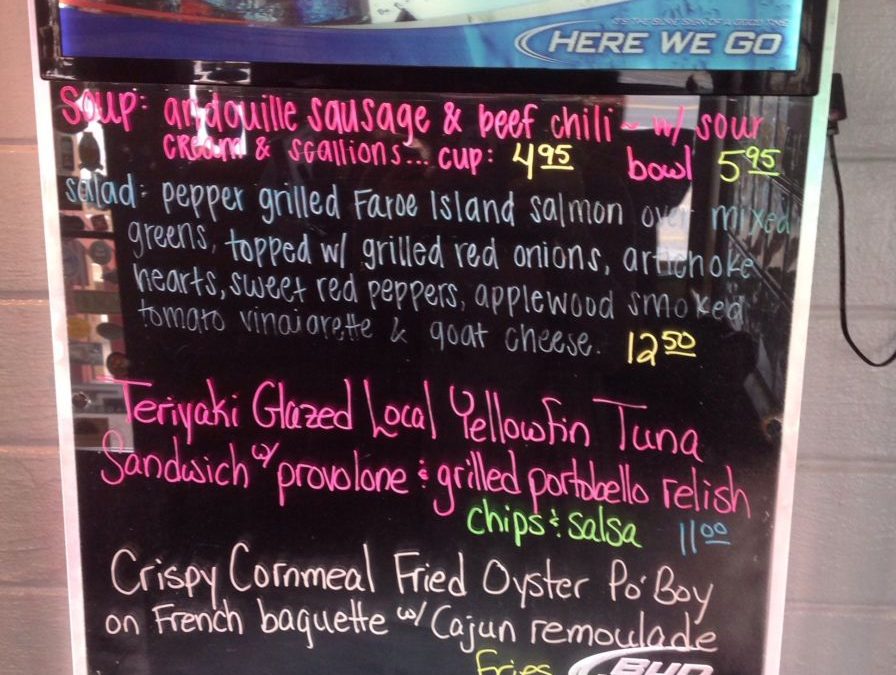 IT'S THE SURE SIGN OF A GOOD TIME
HERE WE GO
soup: andouille sausage & beef chili ~ w/ sour
cream & scallions... cup: 4 95 bowl 5 95
salad: pepper grilled Faroe Island salmon over mixed
greens, topped w/ grilled red onions, artichoke
hearts, sweet red peppers, applewood smoked
tomato vinaiarette & goat cheese. 12 50
Teriyaki Glazed Local Yellowfin Tuna
Sandwich w/ provolone & grilled portobello relish
chips & salsa 11 00
Crispy Cornmeal Fried Oyster Po'Boy
on French baguette w/ Cajun remoulade
Fries
BUD